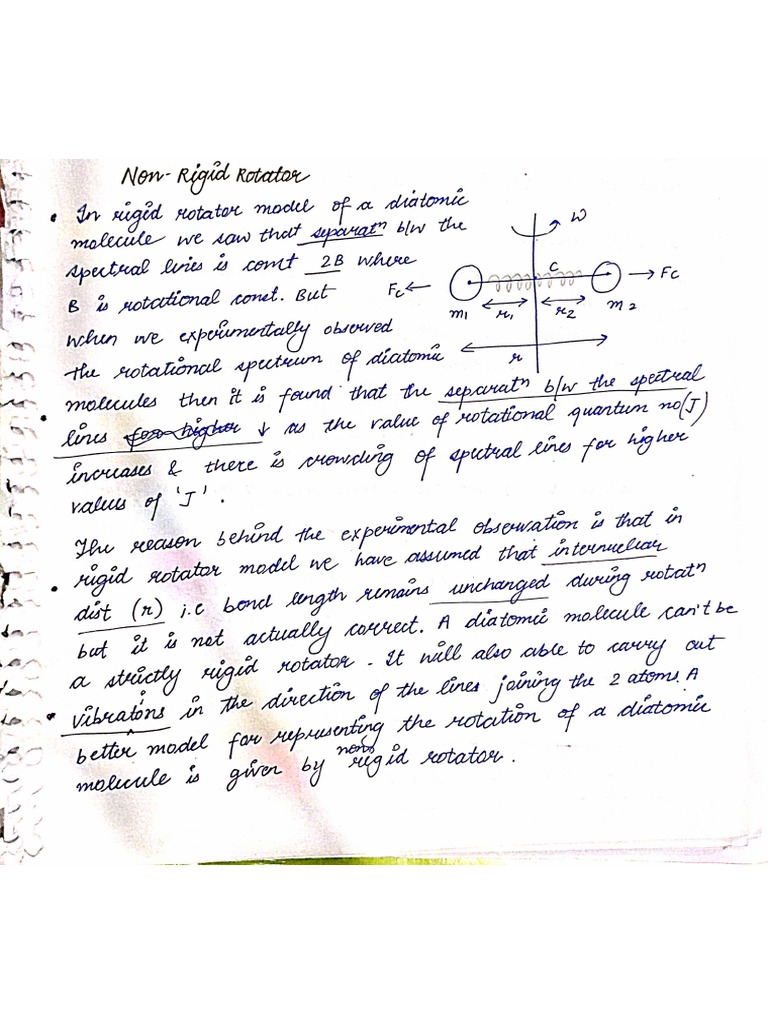 Non-Rigid Rotator
• In rigid rotator model of a diatomic
molecule we saw that separatⁿ b/w the
spectral lines is const 2B where
B is rotational const. But
when we experimentally observed
the rotational spectrum of diatomic
molecules then it is found that the separatⁿ b/w the spectral
• lines for higher ↓ as the value of rotational quantum no(J)
increases & there is crowding of spectral lines for higher
values of 'J'.
ω
C
Fc ←
→ Fc
m1
r1
r2
m2
r
The reason behind the experimental observation is that in
• rigid rotator model we have assumed that internuclear
dist (r) i.e bond length remains unchanged during rotatⁿ
but it is not actually correct. A diatomic molecule can't be
a strictly rigid rotator. It will also able to carry out
• vibrations in the direction of the lines joining the 2 atoms. A
better model for representing the rotation of a diatomic
molecule is given by non rigid rotator.